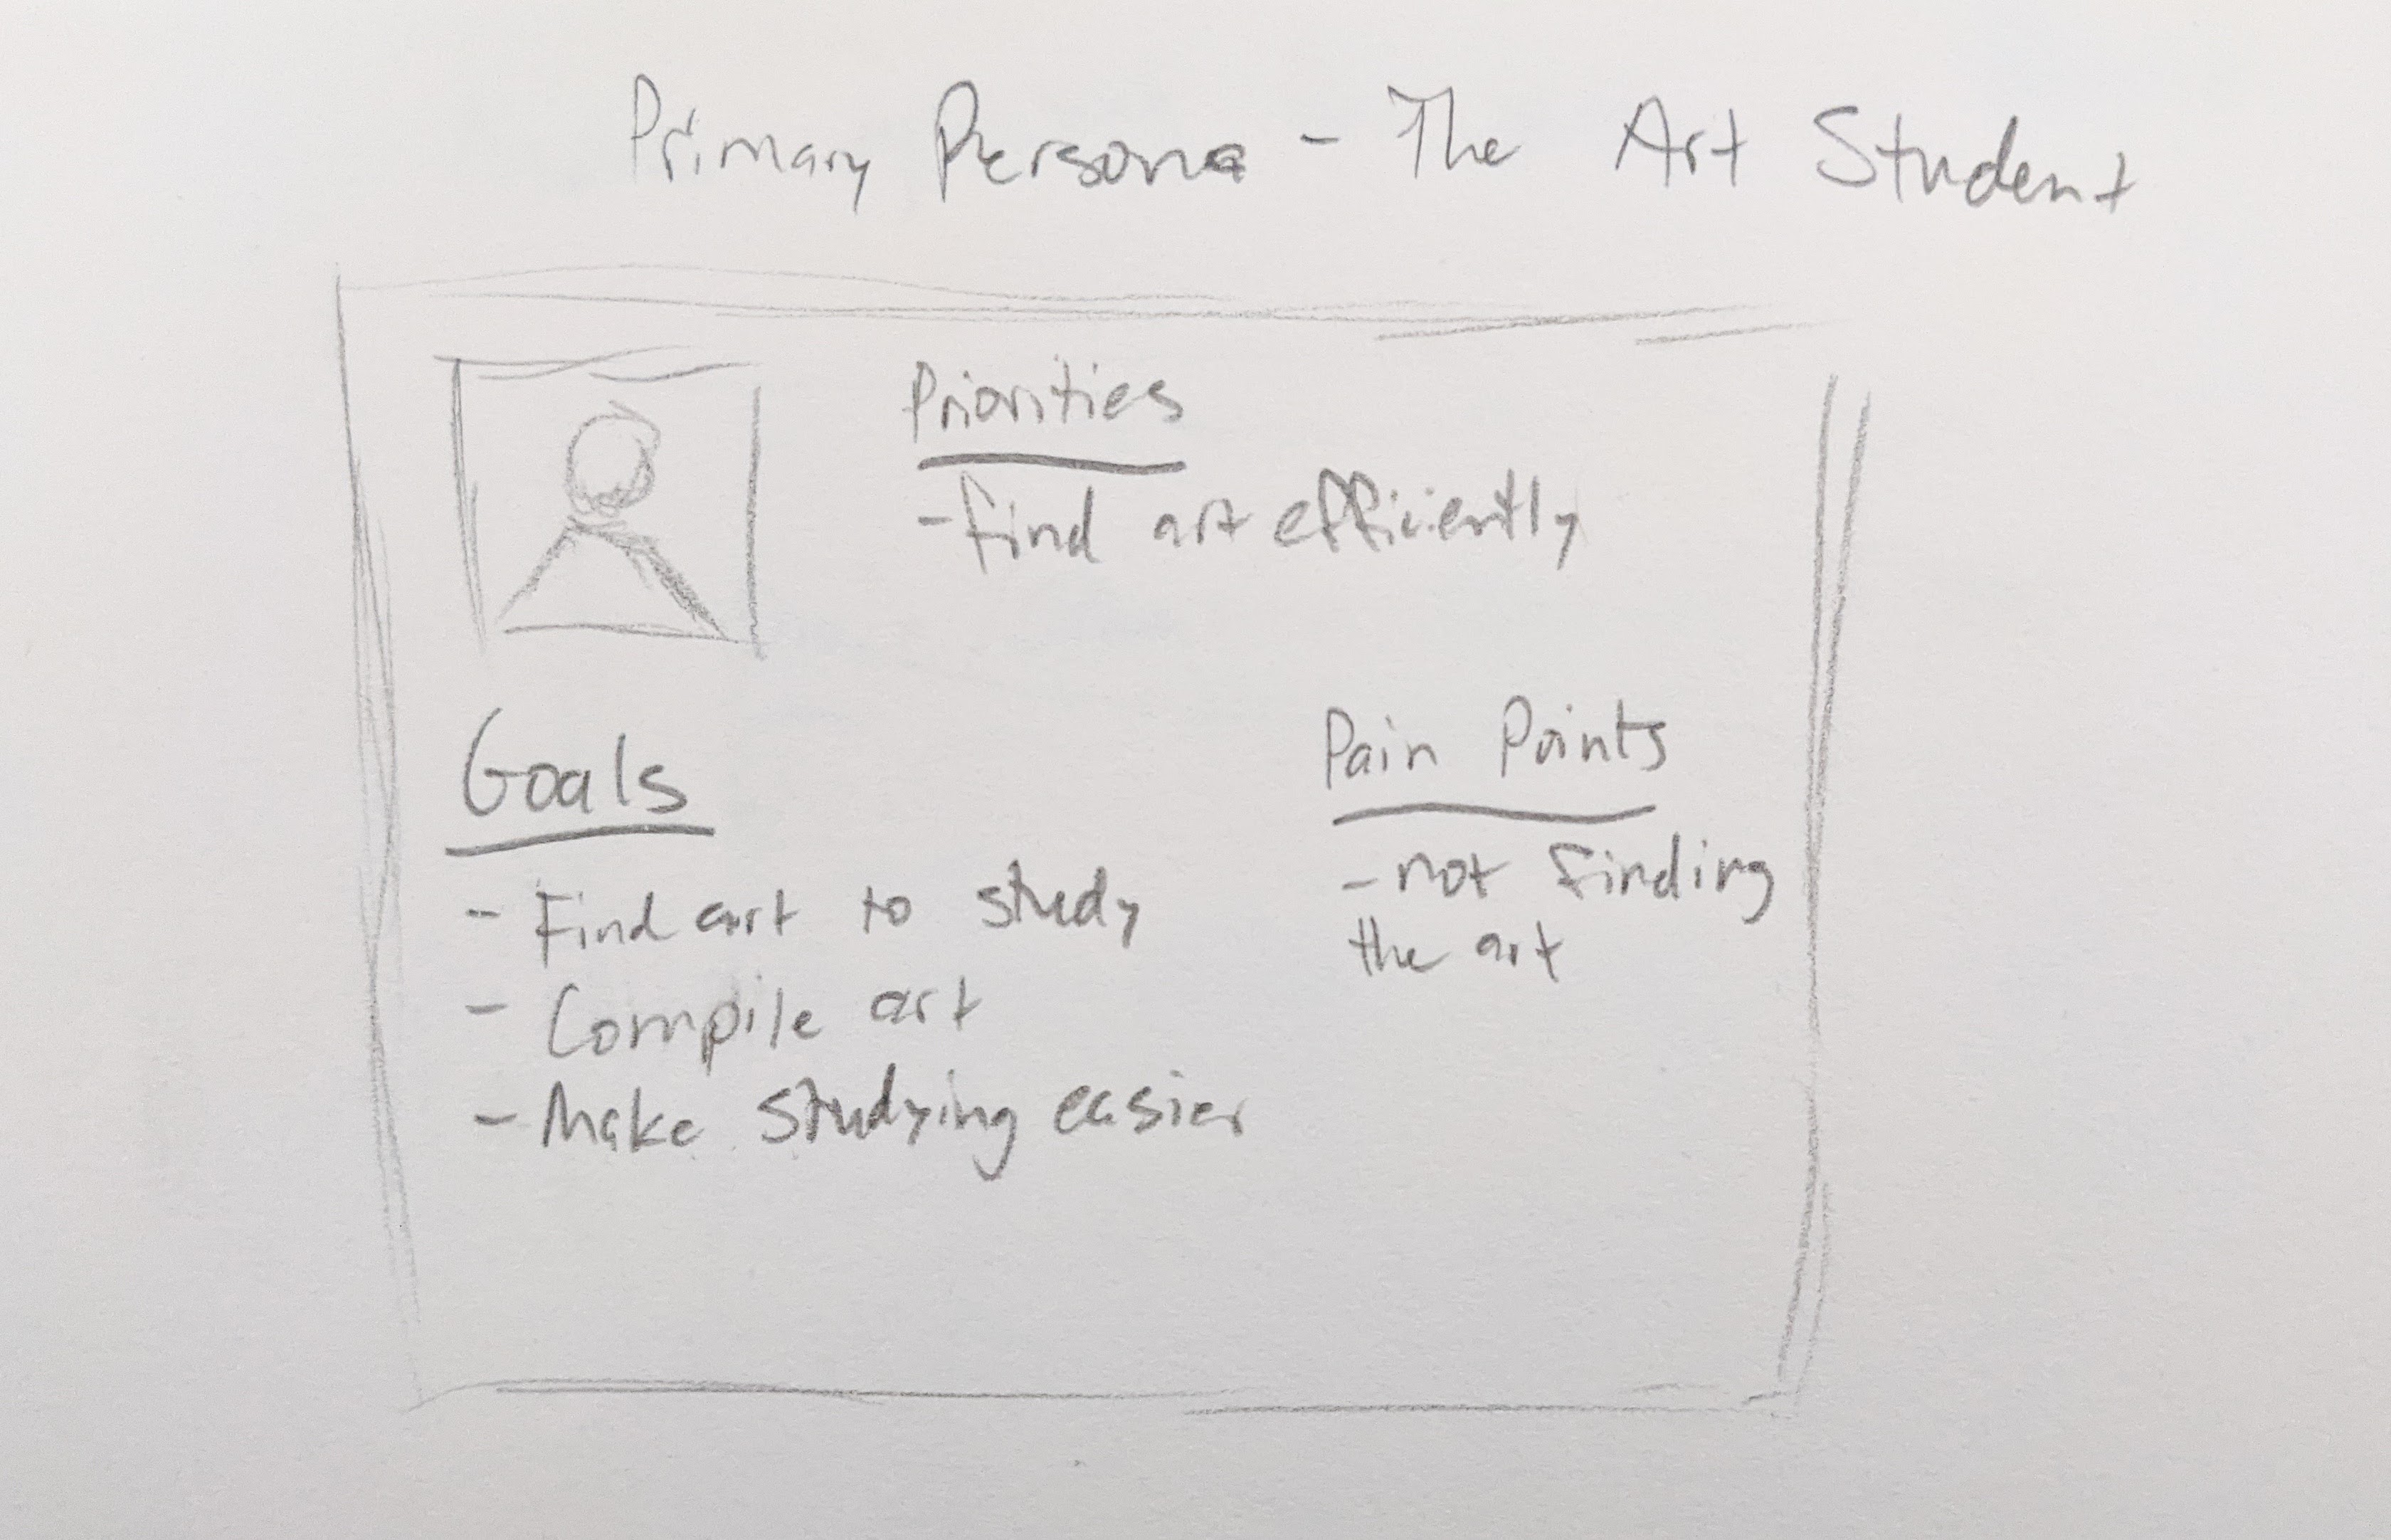 Primary Persona - The Art Student
Priorities
- find art efficiently
Goals
- Find art to study
- Compile art
- Make studying easier
Pain Points
- not finding
the art